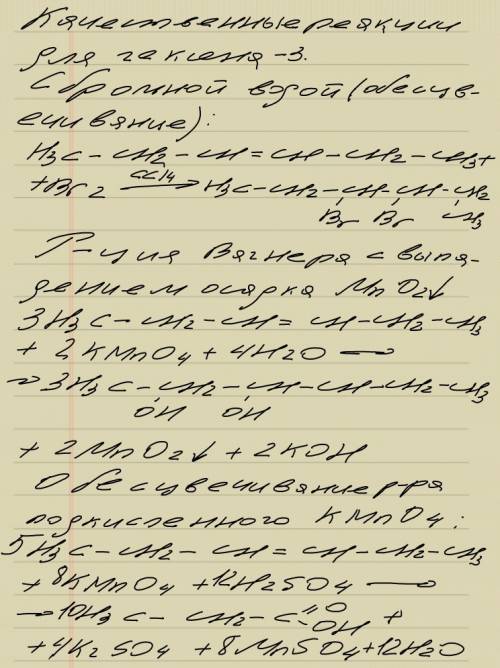 Качественные реакции
для гексена-3.
С бромной водой (обесцв-
ечивание):
H₃C - CH₂ - CH = CH - CH₂ - CH₃ +
+ Br₂ —CCl₄→ H₃C - CH₂ - CH - CH - CH₂
Br Br CH₃
Р-ция Вагнера с выпа-
дением осадка MnO₂↓
3H₃C - CH₂ - CH = CH - CH₂ - CH₃
+ 2KMnO₄ + 4H₂O →
→ 3H₃C - CH₂ - CH - CH - CH₂ - CH₃
OH OH
+ 2MnO₂↓ + 2KOH
Обесцвечивание р-ра
подкисленного KMnO₄:
5H₃C - CH₂ - CH = CH - CH₂ - CH₃
+ 8KMnO₄ + 12H₂SO₄ →
→ 10H₃C - CH₂ - C =O -OH +
+ 4K₂SO₄ + 8MnSO₄ + 12H₂O